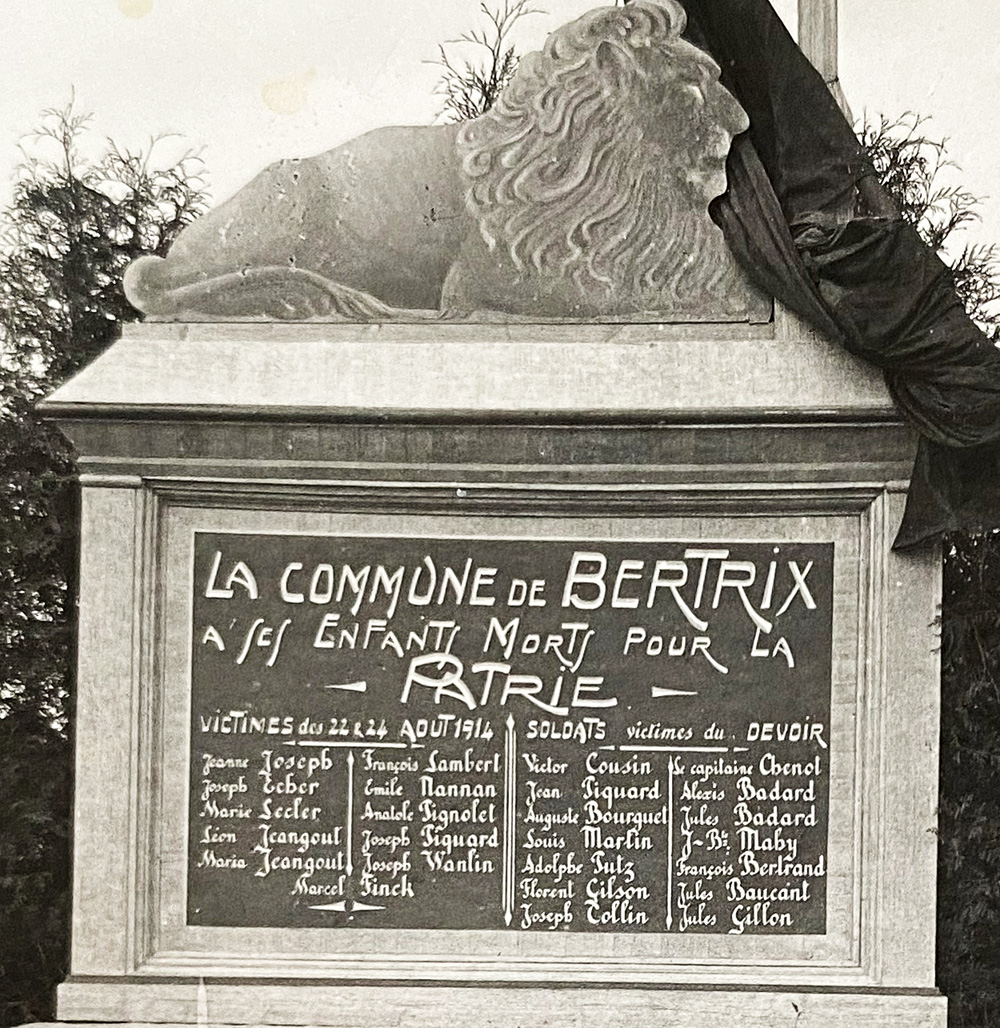 LA COMMUNE DE BERTRIX
A' SES ENFANTS MORTS POUR LA
PATRIE
VICTIMES des 22 & 24 AOUT 1914
Jeanne Joseph
Joseph Ecber
Marie Lecler
Léon Jeangout
Maria Jeangout
François Lambert
Emile Nannan
Anatole Pignolet
Joseph Piquard
Joseph Wanlin
Marcel Finck
SOLDATS victimes du DEVOIR
Victor Cousin
Jean Piquard
Auguste Bourguet
Louis Martin
Adolphe Putz
Florent Gilson
Joseph Collin
Le capitaine Chenot
Alexis Badard
Jules Badard
J-Bte. Maby
François Bertrand
Jules Baucant
Jules Gillon